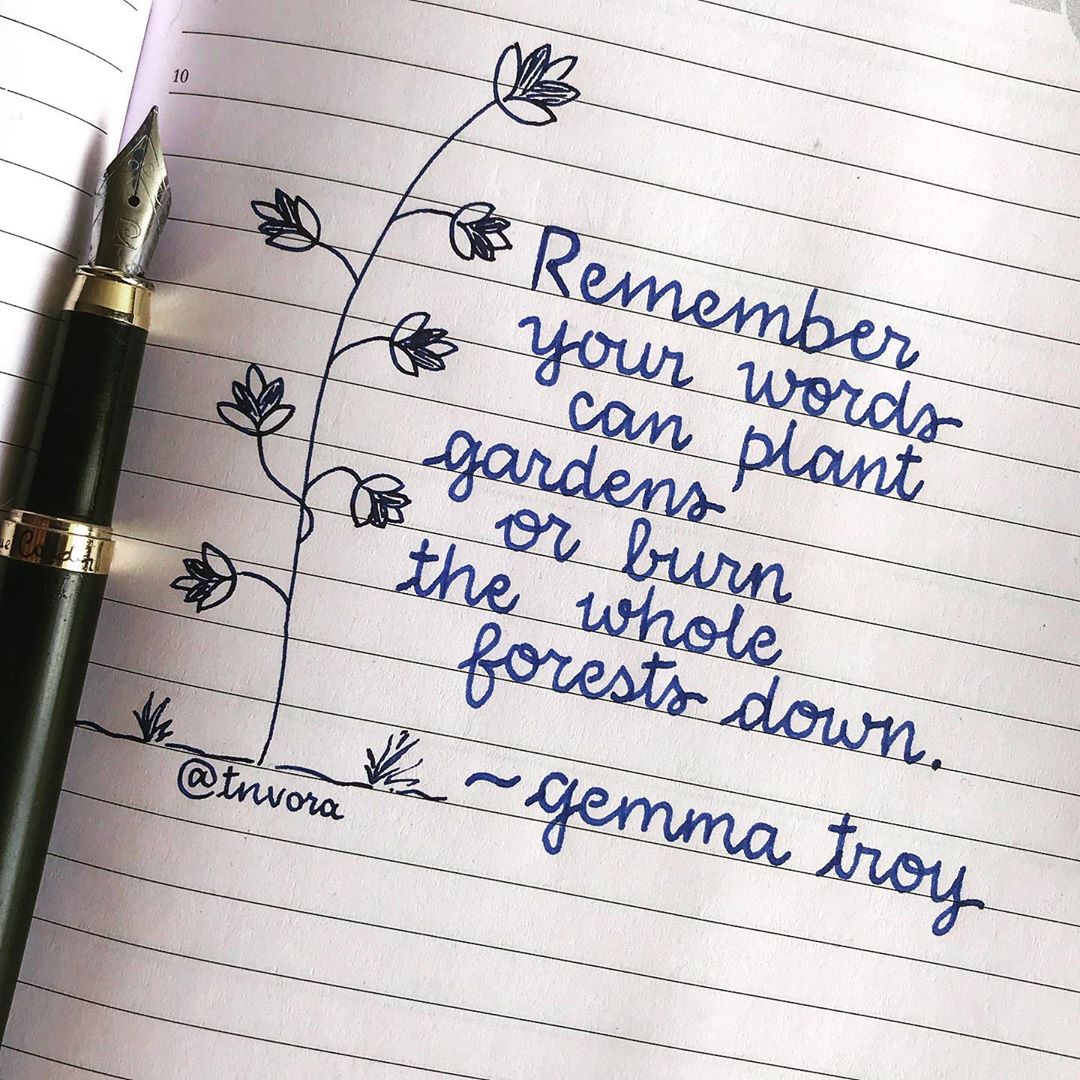 10
Remember
your words
can plant
gardens
or burn
the whole
forests down.
~gemma troy
@tnvora